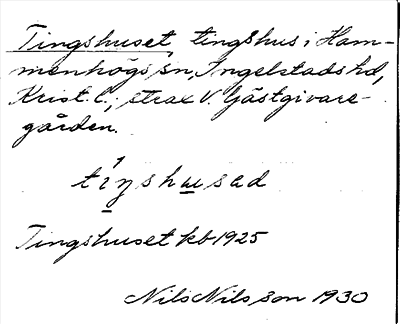 Tingshuset, tingshus i Ham-
menhögs sn, Ingelstads hd,
Krist. l.; strax V. Gästgivare-
gården.
tíŋshu̲sad
Tingshuset kb 1925
Nils Nilsson 1930